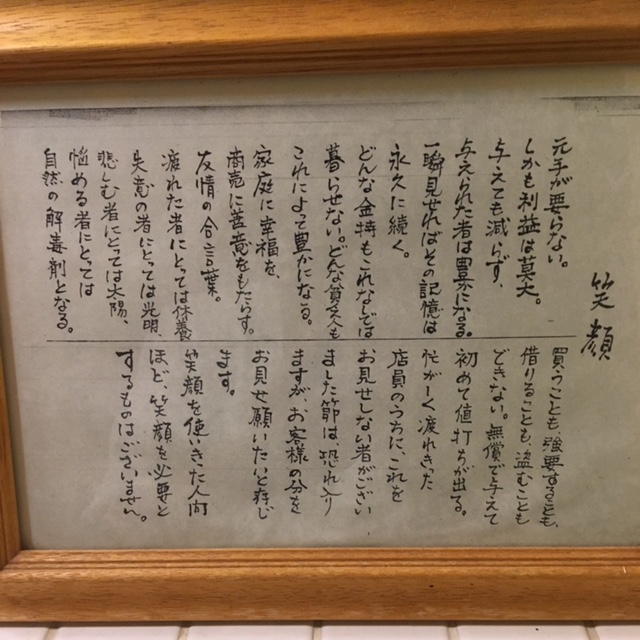 笑顔
元手が要らない。
しかも利益は莫大。
与えても減らず、
与えられた者は豊かになる。
一瞬見せればその記憶は
永久に続く。
どんな金持もこれなしでは
暮らせない。どんな貧乏人も
これによって豊かになる。
家庭に幸福を、
商売に善意をもたらす。
友情の合言葉。
疲れた者にとっては休養、
失意の者にとっては光明、
悲しむ者にとっては太陽、
悩める者にとっては
自然の解毒剤となる。
買うことも、強要することも、
借りることも、盗むことも
できない。無償で与えて
初めて値打ちが出る。
忙がしく疲れきった
店員のうちに、これを
お見せしない者がござい
ました節は、恐れ入り
ますがお客様の分を
お見せ願いたいと存じ
ます。
笑顔を使いきった人間
ほど、笑顔を必要と
するものはございません。